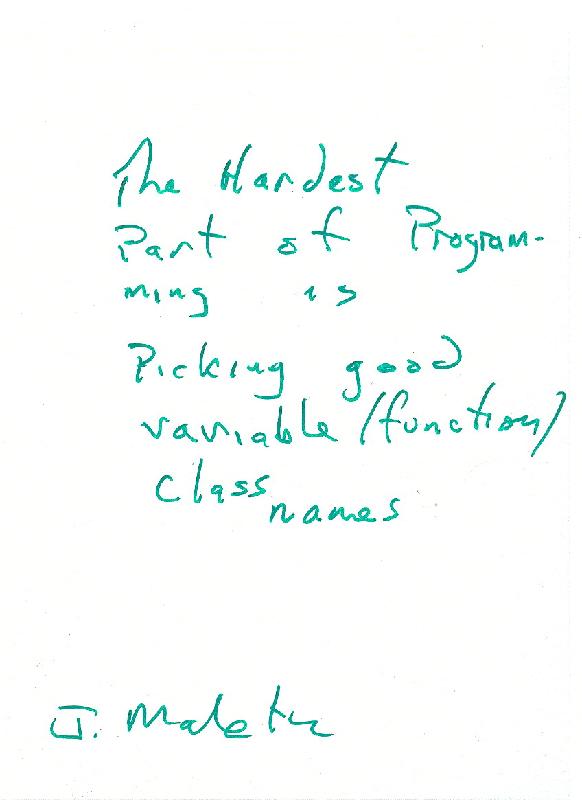 The Hardest
Part of Program-
ming is
Picking good
variable/function/
class names
J. Maletic